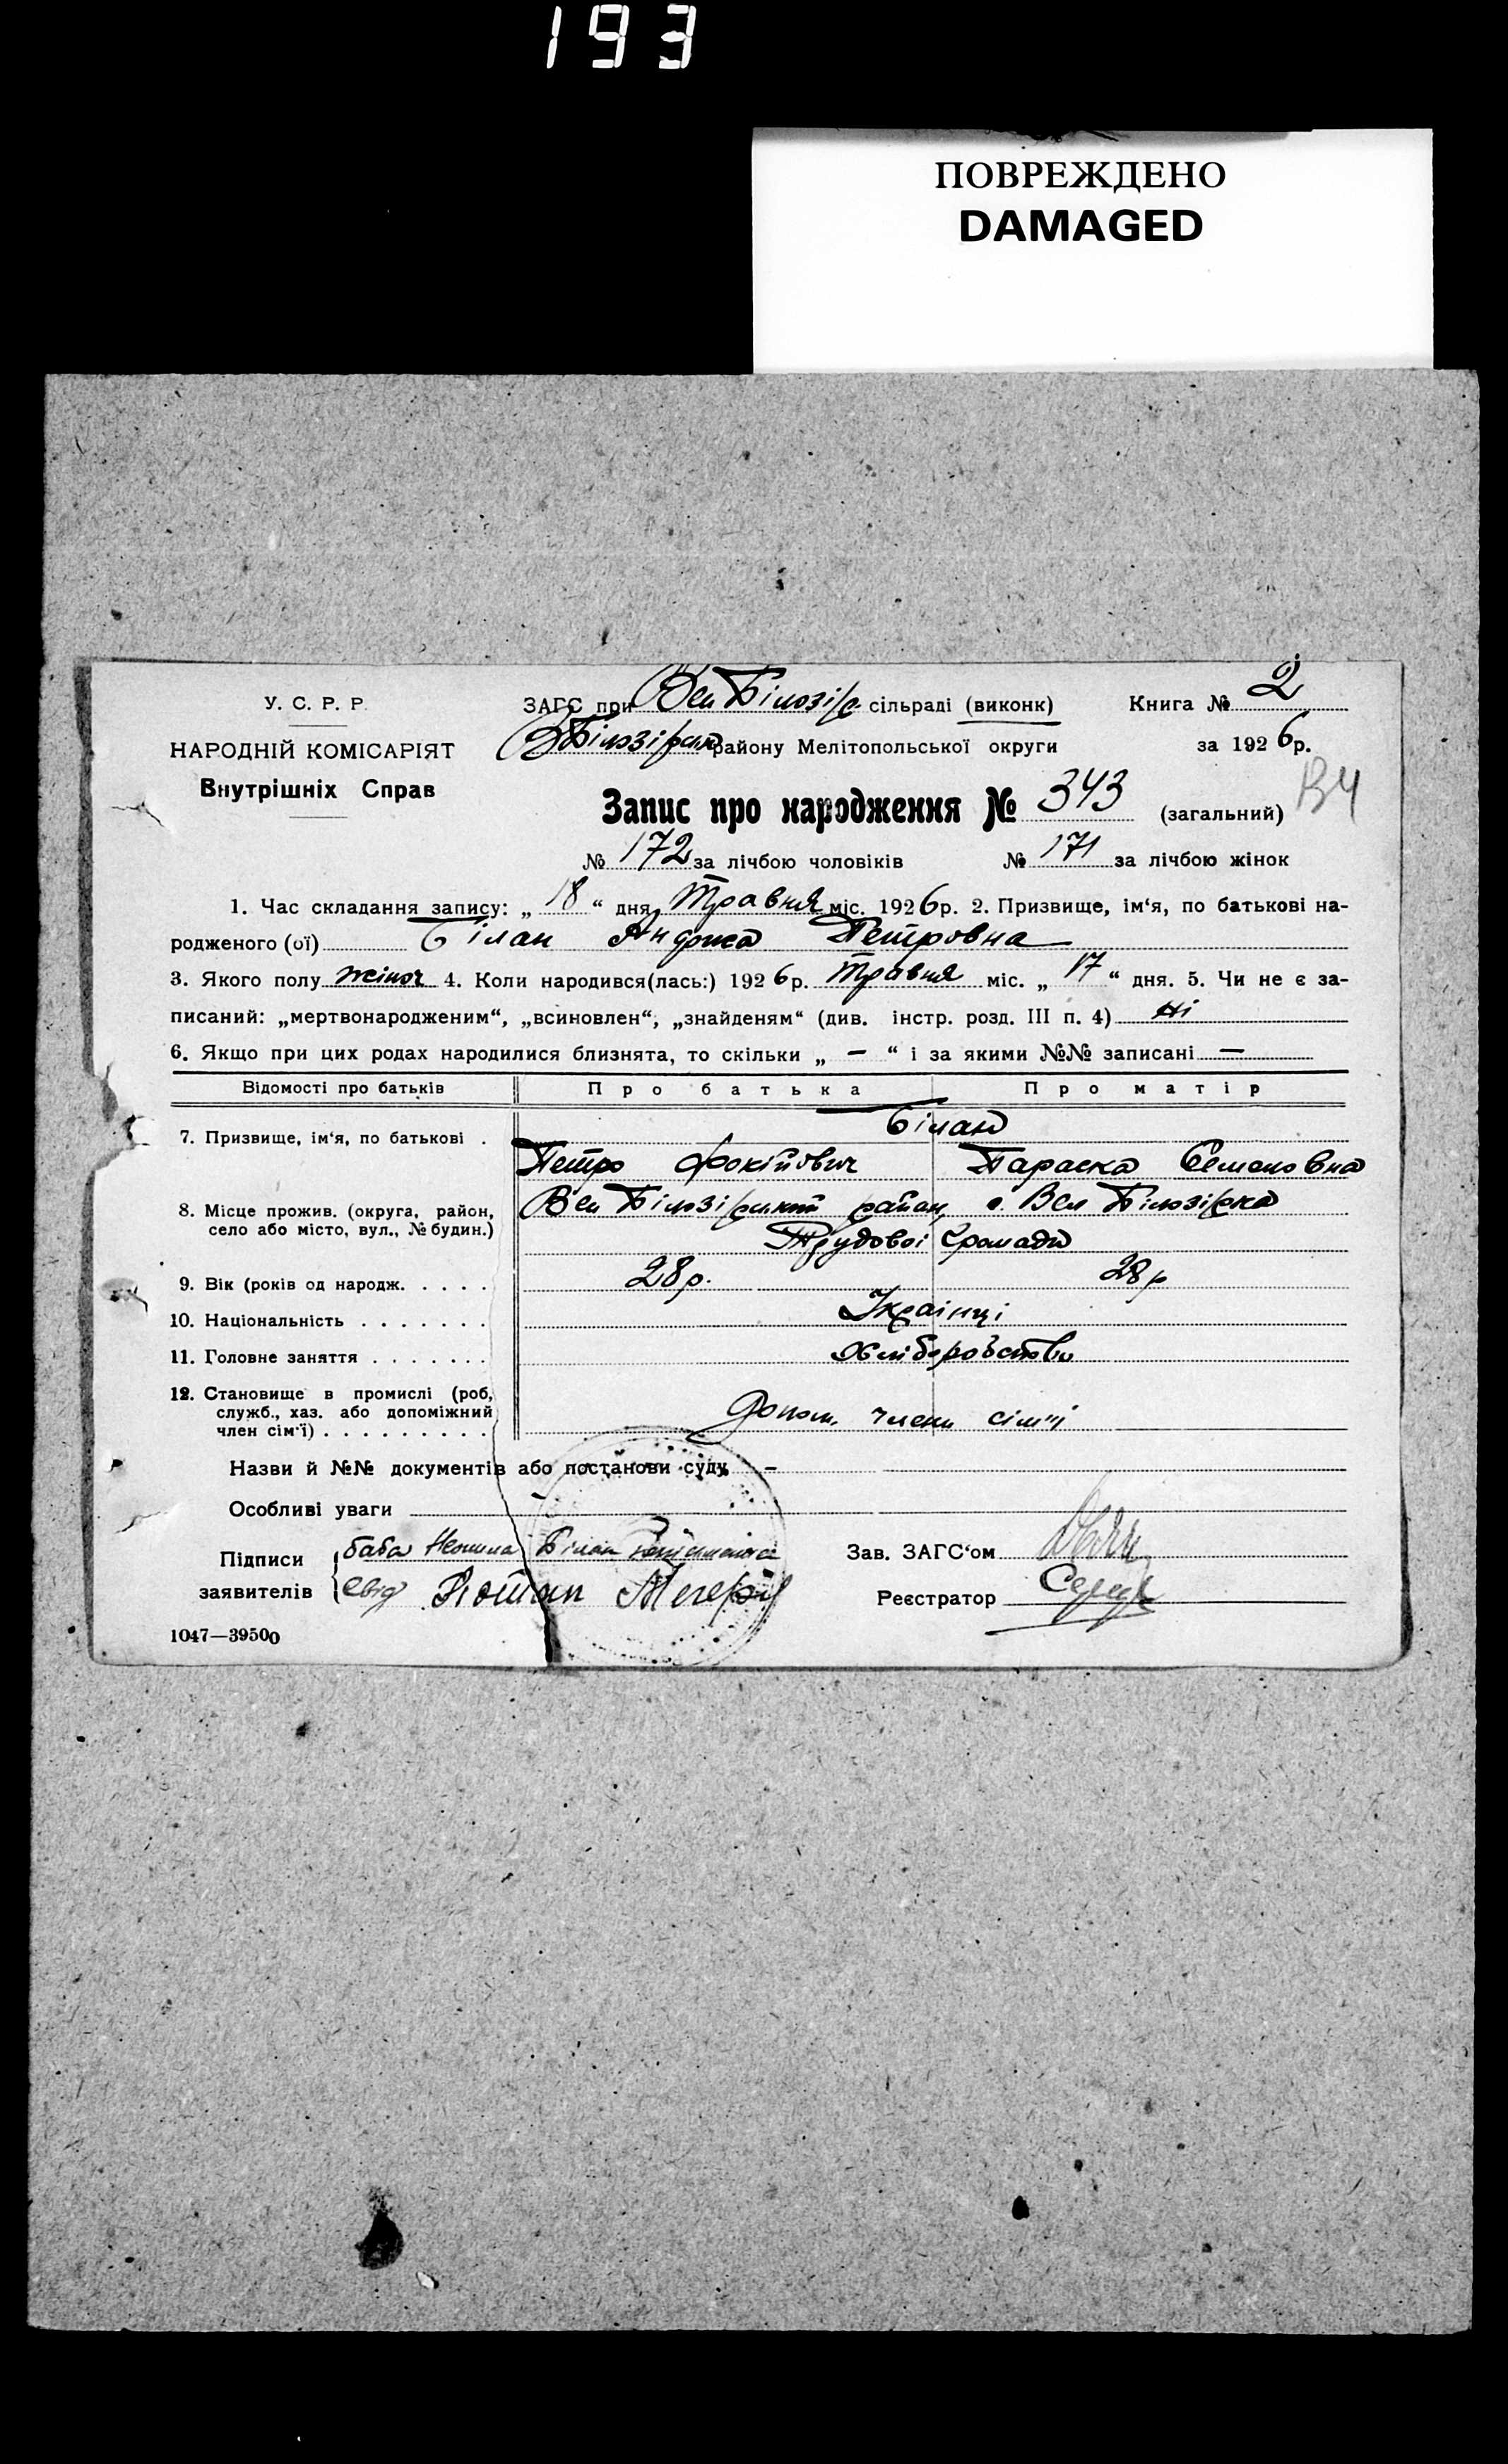 193
ПОВРЕЖДЕНО
DAMAGED
У. С. Р. Р.
НАРОДНІЙ КОМІСАРІЯТ
Внутрішніх Справ
ЗАГС при Вел Білозірс. сільраді (виконк)
Книга № 2
В Білозірськ району Мелітопольської округи
за 1926 р.
Запис про народження № 343 (загальний)
№ 172 за лічбою чоловіків № 171 за лічбою жінок
1. Час складання запису: „ 18 “ дня Травня міс. 1926 р. 2. Призвище, ім‘я, по батькові на-
родженого (ої) Білан Петровна
3. Якого полу жіноч 4. Коли народився(лась:) 1926 р. Травня міс. „ 17 “ дня. 5. Чи не є за-
писаний: „мертвонародженим“, „всиновлен“, „знайденям“ (див. інстр. розд. III п. 4) Ні
6. Якщо при цих родах народилися близнята, то скільки „ — “ і за якими №№ записані —
Відомості про батьків Про батька Про матір
7. Призвище, ім‘я, по батькові . Білан
Петро Фокійович Параска Семеновна
8. Місце прожив. (округа, район, село або місто, вул., № будин.) Вел Білозірський район, с. Вел Білозірка
Трудової Громади
9. Вік (років од народж. . . . . 28 р. 28 р
10. Національність . . . . . . . Українці
11. Головне заняття . . . . . . . Хліборобство
12. Становище в промислі (роб, служб., хаз. або допоміжний член сім‘ї) . . . . . . . . . Допом. члени сім'ї
Назви й №№ документів або постанови суду –
Особливі уваги
Підписи заявителів баба Білан
свід Потап
Зав. ЗАГС‘ом
Реєстратор
1047—39500